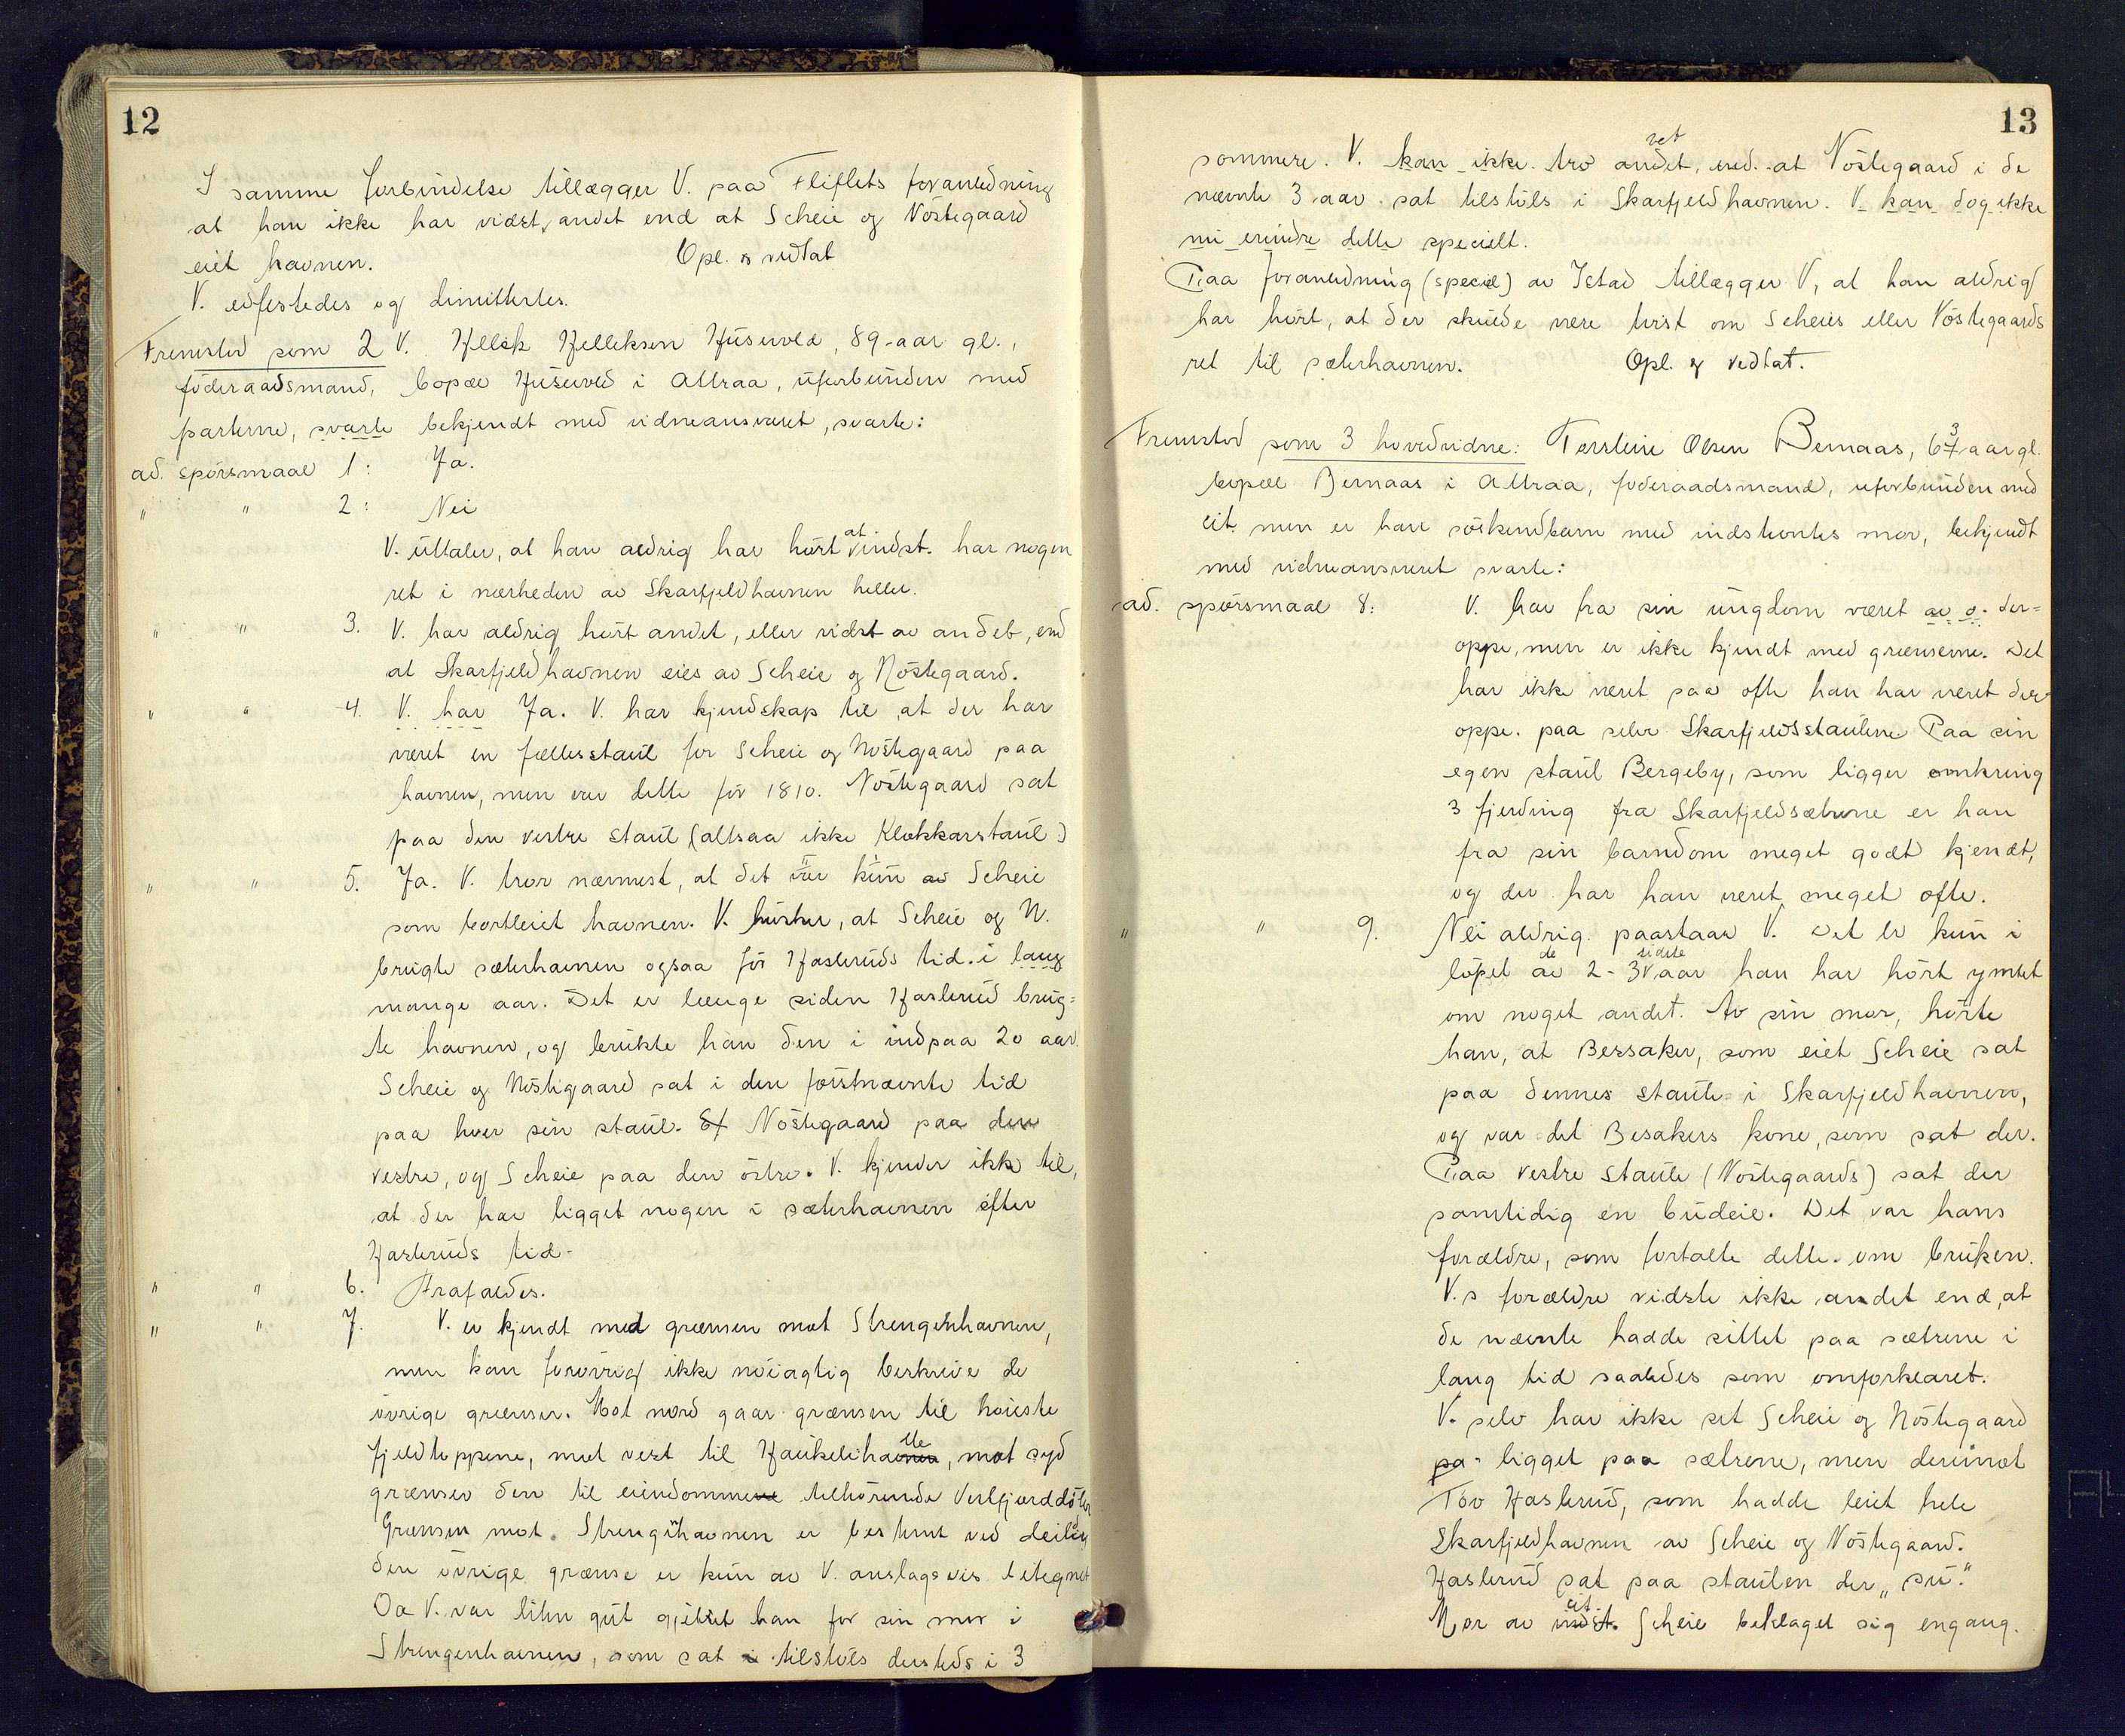 12
I samme forbindelse tillægger V. paa Fliflets foranledning
at han ikke har vidst, andet end at Scheie og Nöstegaard
eiet havnen. Opl. & vedtat
V. edfæstedes og dimittertes.
Fremstod som 2 V. Hellek Helleksen Husevold, 89 aar gl.,
föderaadsmand, bopæl Husevold i Attraa, uforbunden med
parterne, svarte bekjendt med vidneansvaret, svarte:
ad. spörsmaal 1: Ja.
" " 2: Nei
V. uttaler, at han aldrig har hört at indst. har nogen
ret i nærheden av Skarfjeldhavnen heller.
" " 3. V. har aldrig hört andet, eller vidst av andet, end
at Skarfjeldhavnen eies av Scheie og Nöstegaard.
" " 4. V. har Ja. V. har kjendskap til, at der har
været en fællesstaul for Scheie og Nöstegaard paa
havnen, men var dette för 1810. Nöstegaard sat
paa den vestre staul (altsaa ikke Klokkarstaul)
" " 5. Ja. V. tror nærmest, at det var kun av Scheie
som bortleiet havnen. V. husker, at Scheie og N.
brugte sæterhavnen ogsaa för Hasleruds tid. i lang
mange aar. Det er længe siden Haslerud brug=
te havnen, og brukte han den i indpaa 20 aar.
Scheie og Nöstegaard sat i den förstnævnte tid
paa hver sin staul. Nöstegaard paa den
vestre, og Scheie paa den östre. V. kjender ikke til,
at der har ligget nogen i sæterhavnen efter
Hasleruds tid.
" " 6. Frafaldes.
" " 7. V. er kjendt med grænsen mot Strengenhavnen,
men kan forövrig ikke nöiagtig beskrive de
övrige grænser. Mot nord gaar grænsen til höieste
fjeldtoppene, mot vest til Haukelihavnen, mot syd
grænser den til eiendommene tilhörende Vestfjorddölen
Grænsen mot. Strengehavnen er bestemt ved deilder
den övrige grænse er kun av V. anslagsvis betegnet
Da V. var liten gut gjætet han for sin mor i
Strengenhavnen, som sat i tilstöls dersteds i 3
13
sommere. V. kan ikke tro andet, vet end at Nöstegaard i de
nævnte 3 aar sat tilstöls i Skarfjeldhavnen. V. kan dog ikke
nu erindre dette specielt.
Paa foranledning (speciel) av Istad tillægger V, at han aldrig
har hört, at der skulde være tvist om Scheies eller Nöstegaards
ret til sæterhavnen. Opl. & vedtat.
Fremstod som 3 hovedvidne: Torstein Olsen Bernaas, 63 aar gl.
bopæl Bernaas i Attraa, föderaadsmand, uforbunden med
cit. men er han söskendbarn med indstevntes mor, bekjendt
med vidneansvaret svarte:
ad. spörsmaal 8: V. har fra sin ungdom været av o. der=
oppe, men er ikke kjendt med grænserne. Det
har ikke været saa ofte han har været der
oppe. paa selve Skarfjeldsstaulene Paa sin
egen staul Bergeby, som ligger omkring
3 fjerding fra Skarfjeldsætrene er han
fra sin barndom meget godt kjendt,
og der har han været meget ofte.
" " 9. Nei aldrig paastaar V. Det er kun i
löpet av de 2-3 sidste aar han har hört ymtet
om noget andet. Av sin mor, hörte
han, at Bessaker, som eiet Scheie sat
paa dennes staule i Skarfjeldhavnen,
og var det Besakers kone, som sat der.
Paa vestre staule (Nöstegaards) sat der
samtidig en budeie. Det var hans
forældre, som fortalte dette. om bruken.
V.s forældre vidste ikke andet end, at
de nævnte hadde sittet paa sætrene i
lang tid saaledes som omforklaret.
V. selv har ikke set Scheie og Nöstegaard
pa ligget paa sætrene, men derimot
Tov Haslerud, som hadde leiet hele
Skarfjeldhavnen av Scheie og Nöstegaard.
Haslerud sat paa staulen der „su."
Mor av indst. cit. Scheie beklaget sig engang.